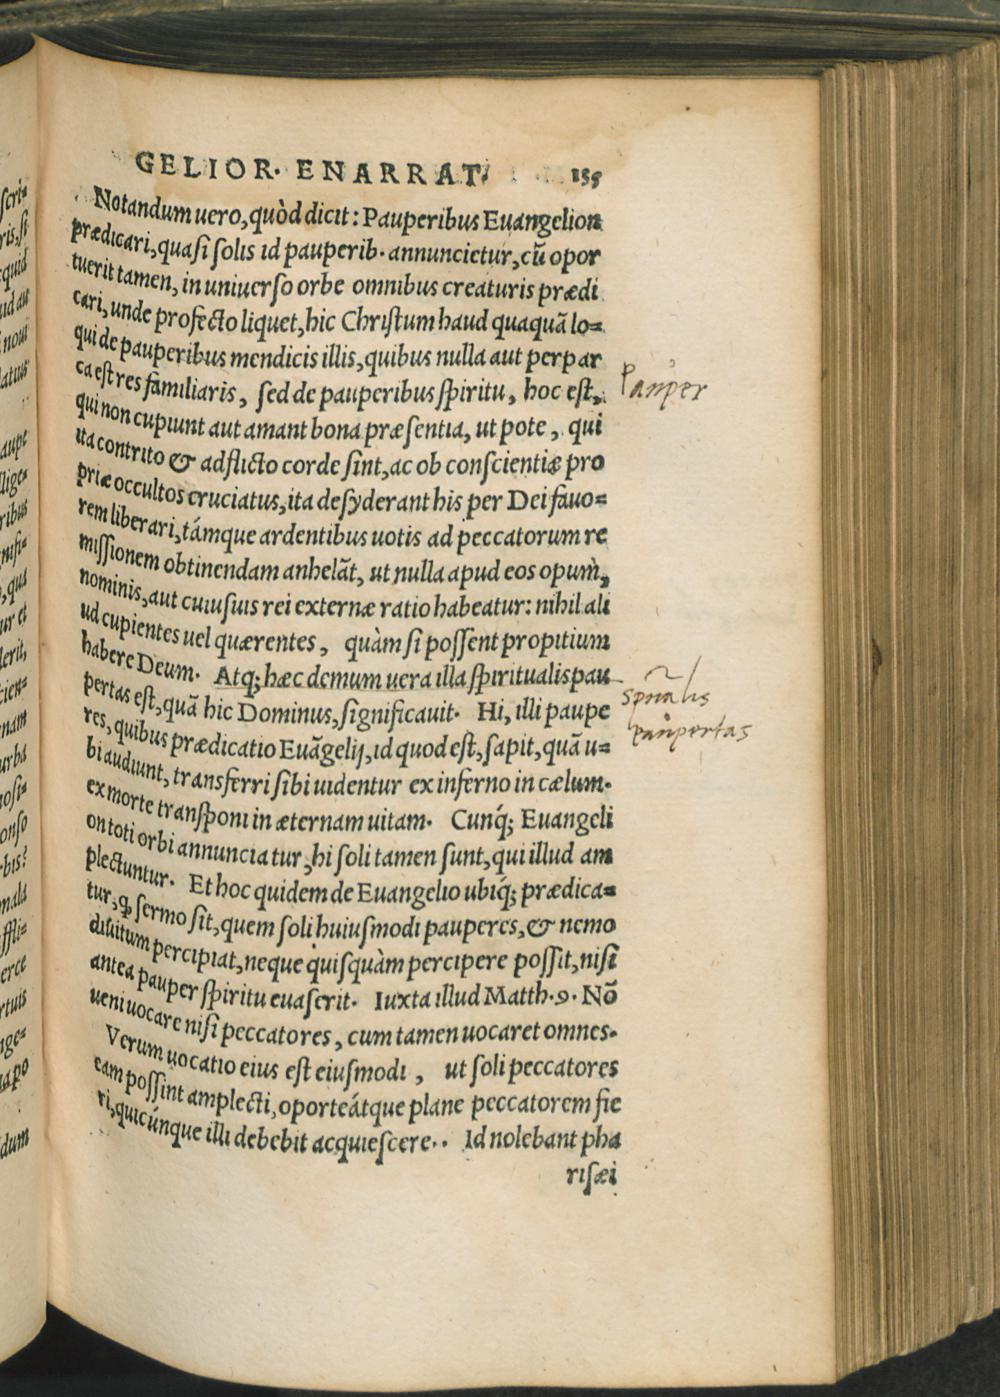 GELIOR. ENARRAT. 155
Notandum uero, quòd dicit: Pauperibus Euangelion
prædicari, quasi solis id pauperib. annuncietur, cū opor
tuerit tamen, in uniuerso orbe omnibus creaturis prædi
cari, unde profecto liquet, hic Christum haud quaquā lo=
qui de pauperibus mendicis illis, quibus nulla aut perpar
ca est res familiaris, sed de pauperibus spiritu, hoc est,
Pauper
qui non cupiunt aut amant bona præsentia, ut pote, qui
ita contrito & adflicto corde sint, ac ob conscientiæ pro
priæ occultos cruciatus, ita desyderant his per Dei fauo=
rem liberari, támque ardentibus uotis ad peccatorum re
missionem obtinendam anhelāt, ut nulla apud eos opum,
nominis, aut cuiusuis rei externæ ratio habeatur: nihil ali
ud cupientes uel quærentes, quàm si possent propitium
habere Deum. Atq; hæc demum uera illa spiritualis pau
pertas est, quā hic Dominus, significauit. Hi, illi paupe
Sp̄ualis
paupertas
res, quibus prædicatio Euāgelij, id quod est, sapit, quā u=
bi audiunt, transferri sibi uidentur ex inferno in cælum.
ex morte transponi in æternam uitam. Cunq́; Euangeli
on toti orbi annunciatur, hi soli tamen sunt, qui illud am
plectuntur. Et hoc quidem de Euangelio ubiq́; prædica=
tur, ꝙ sermo sit, quem soli huiusmodi pauperes, & nemo
diuitum percipiat, neque quisquàm percipere possit, nisi
antea pauper spiritu euaserit. Iuxta illud Matth. 9. Nō
ueni uocare nisi peccatores, cum tamen uocaret omnes.
Verum uocatio eius est eiusmodi, ut soli peccatores
eam possint amplecti, oporteátque plane peccatorem fie
ri, quicúnque illi debebit acquiescere.. Id nolebant pha
risæi